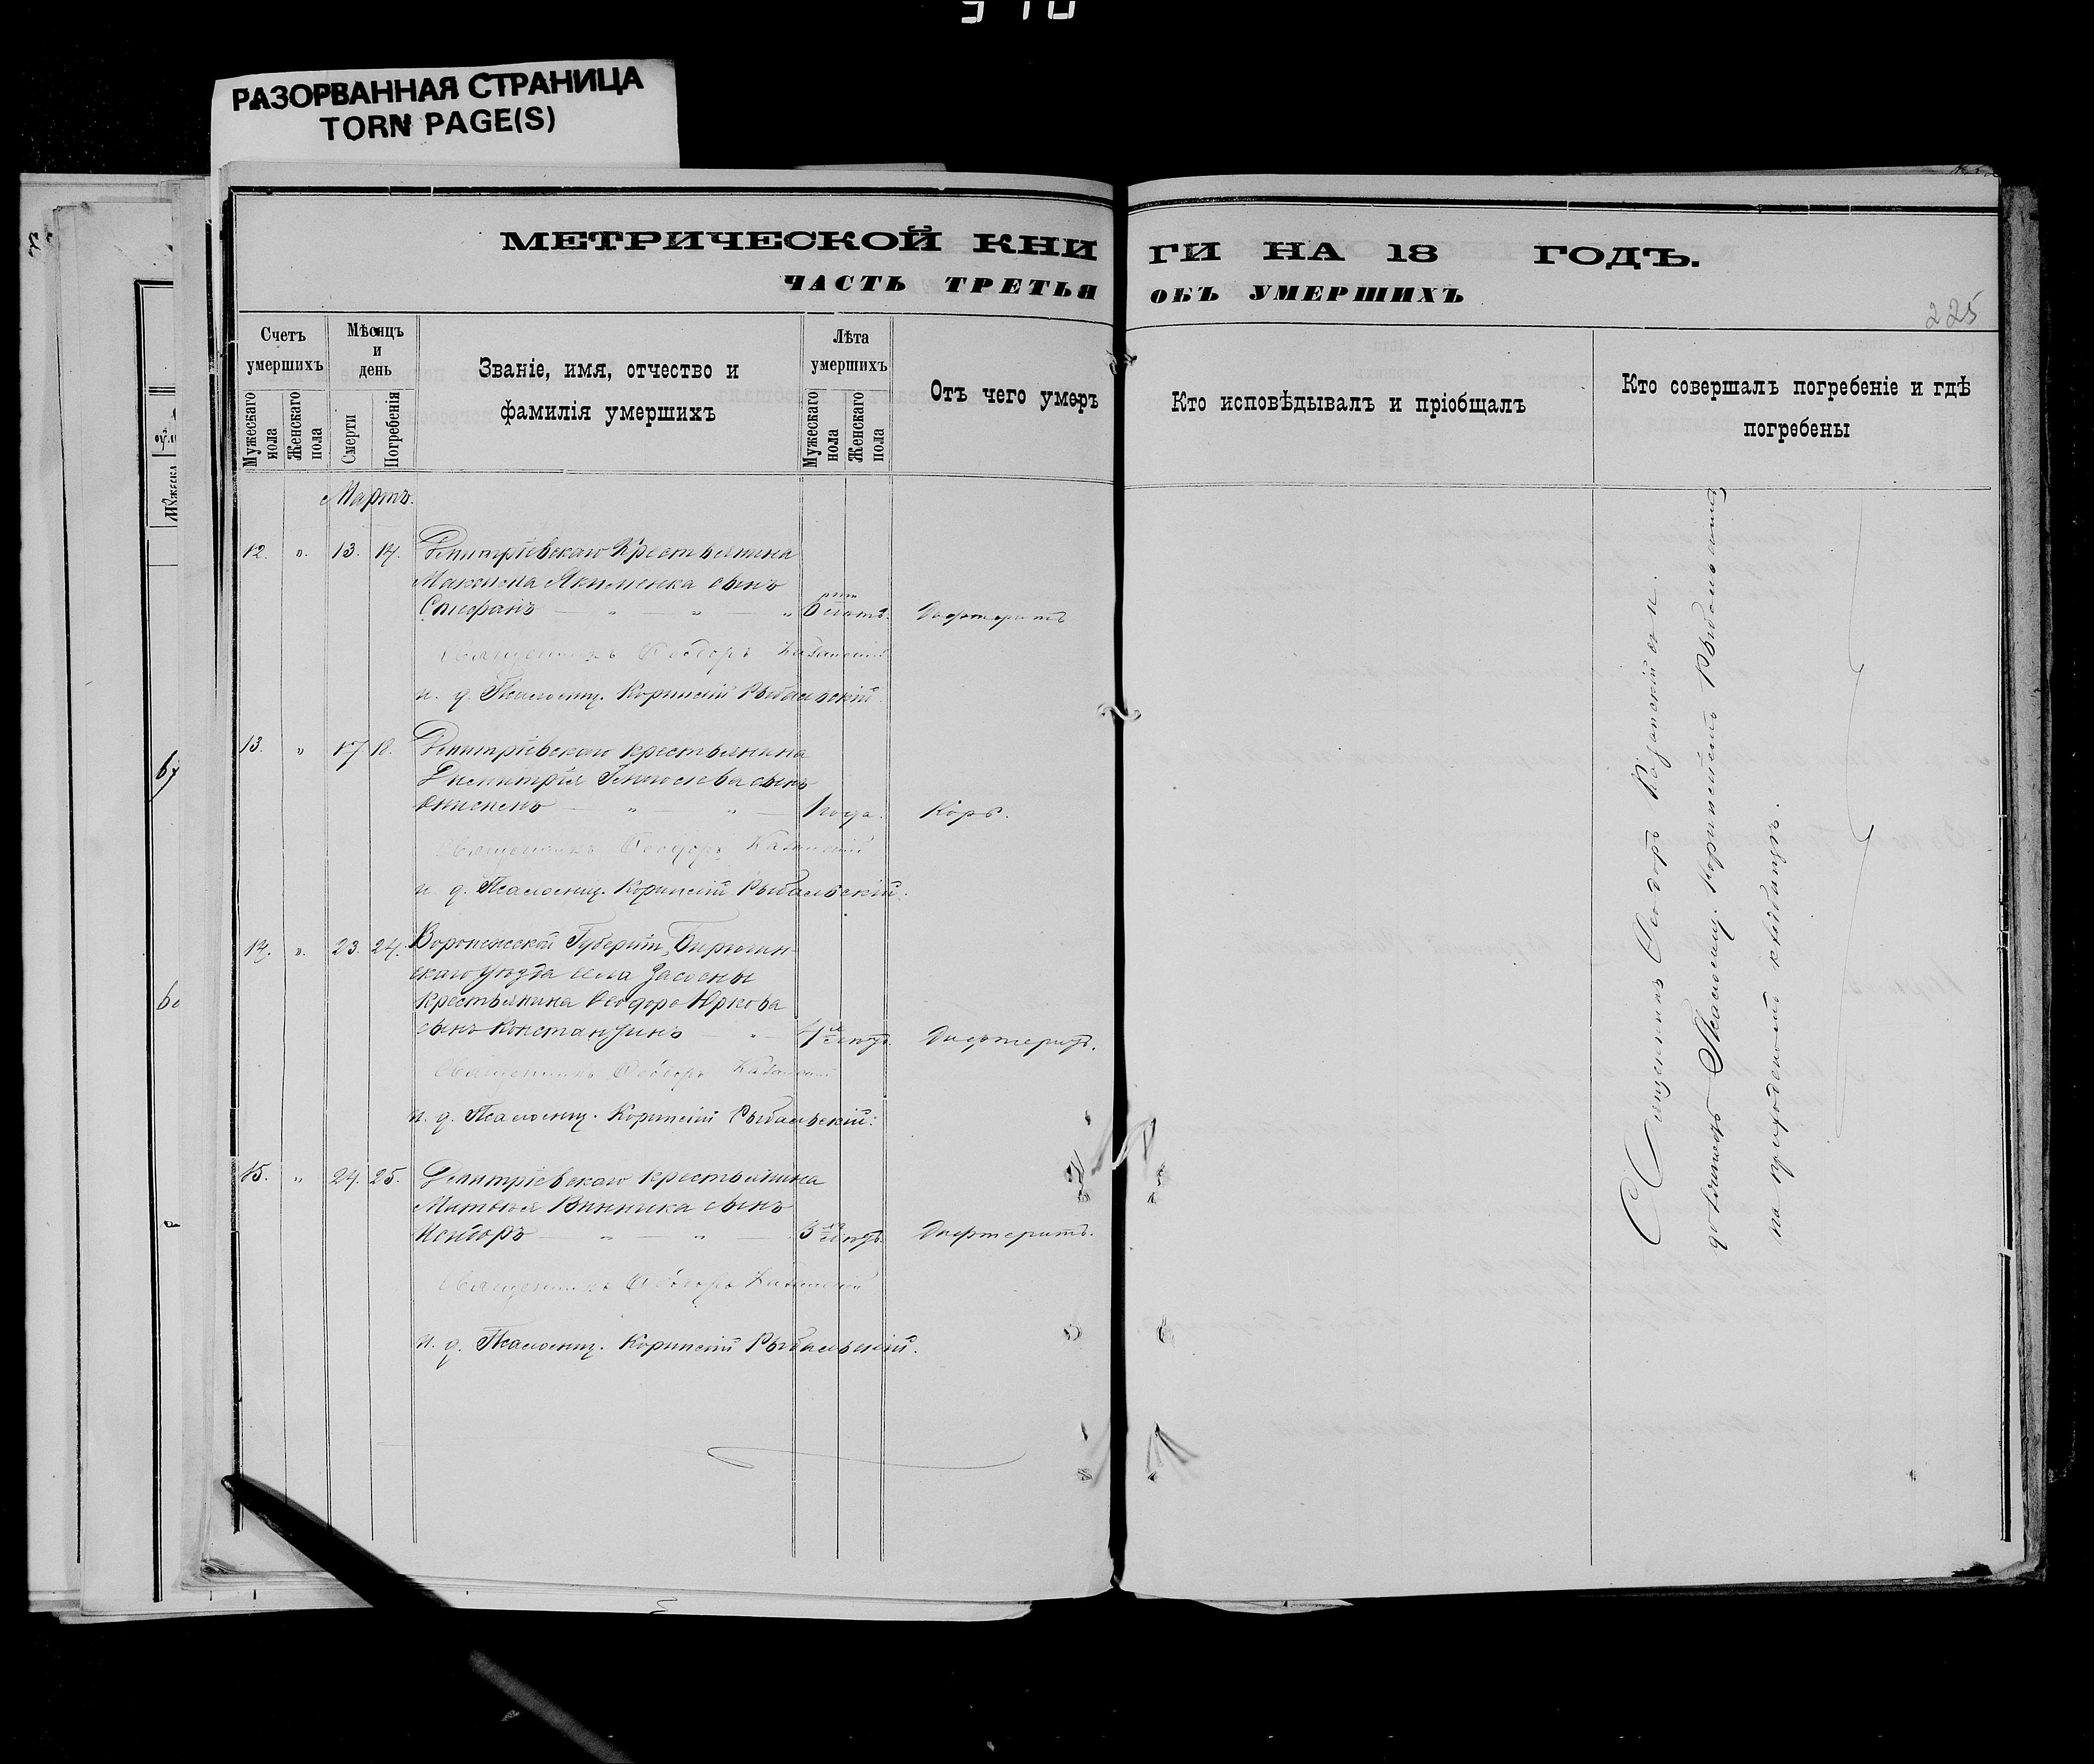 РАЗОРВАННАЯ СТРАНИЦА
TORN PAGE(S)
МЕТРИЧЕСКОЙ КНИ
ГИ НА 18 ГОДЪ.
ЧАСТЬ ТРЕТЬЯ
ОБЪ УМЕРШИХЪ
225
Счетъ умершихъ
Мужескаго пола
Женскаго пола
Мѣсяцъ и день
Смерти
Погребенія
Званіе, имя, отчество и
фамилія умершихъ
Лѣта умершихъ
Мужескаго пола
Женскаго пола
Отъ чего умеръ
Кто исповѣдывалъ и пріобщалъ
Кто совершалъ погребеніе и гдѣ
погребены
Мартъ.
12. " 13. 14. Димитріевскаго Крестьянина
Максима Якименка сынъ
Стефанъ — " — " — " 6 лѣтъ. Дифтеритъ
Священникъ Ѳеодоръ Казанскій
и. д. Псаломщ. Корнилій Рыбальскій.
13. " 17 18. Димитріевскаго крестьянина
Димитрія сынъ
— " — " — 1 года. Корь.
Священникъ Ѳеодоръ Казанскій
и. д. Псаломщ. Корнилій Рыбальскій.
14. " 23. 24. Воронежской Губерніи, Бирючин-
скаго Уѣзда села Засосны
Крестьянина Ѳеодора Юркова
сынъ Константинъ — " — 4 лѣтъ. Дифтеритъ.
Священникъ Ѳеодоръ Казанскій
и. д. Псаломщ. Корнилій Рыбальскій.
15. " 24. 25. Димитріевскаго крестьянина
Матвѣя Винника сынъ
— " — " — 3 лѣтъ Дифтеритъ.
Священникъ Ѳеодоръ Казанскій
и. д. Псаломщ. Корнилій Рыбальскій.
Священникъ Ѳеодоръ Казанскій и
Псаломщ. Корнилій Рыбальскій
на приходскомъ кладбищѣ.